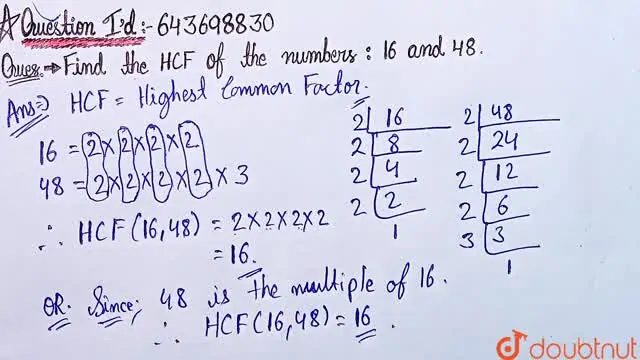 ☆ Question I'd :- 643698830
Ques. → Find the HCF of the numbers : 16 and 48.
Ans ⇒ HCF = Highest Common Factor.
16 = 2 × 2 × 2 × 2
48 = 2 × 2 × 2 × 2 × 3
∴ HCF (16,48) = 2 × 2 × 2 × 2
= 16.
OR. Since, 48 is the multiple of 16.
∴ HCF (16,48) = 16.
2 | 16
2 | 8
2 | 4
2 | 2
1
2 | 48
2 | 24
2 | 12
2 | 6
3 | 3
1
doubtnut